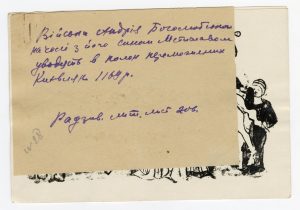 Війська Андрія Боголюбського
на чолі з його сином Мстиславом
уводять в полон переможених
Киян 1169 р.
Радзив. літ. лист 206.